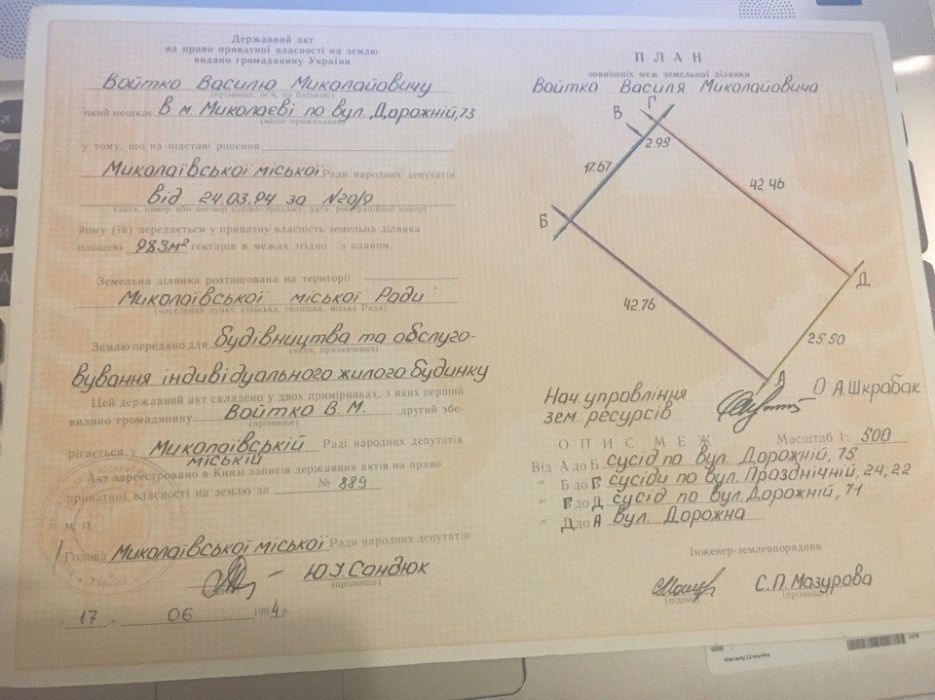 Державний акт
на право приватної власності на землю
видано громадянину України
Войтко Василю Миколайовичу
(прізвище, ім'я, по батькові)
який мешкає в м. Миколаєві по вул. Дорожній, 73
(місце проживання)
у тому, що на підставі рішення
Миколаївської міської Ради народних депутатів
від 24.03.94 за №20/9
(дата, номер або договір купівлі-продажу, дата, реєстраційний номер)
йому (їй) передається у приватну власність земельна ділянка
площею 983м² гектарів в межах згідно з планом.
Земельна ділянка розташована на території
Миколаївської міської Ради
(населений пункт, сільська, селищна, міська Рада)
Землю передано для будівництва та обслуго-
(мета, призначення)
вування індивідуального жилого будинку
Цей державний акт складено у двох примірниках, з яких перший
видано громадянину Войтко В.М. другий збе-
(прізвище)
рігається у Миколаївській Раді народних депутатів.
міській
Акт зареєстровано в Книзі записів державних актів на право
приватної власності на землю за № 889
М. П.
Голова Миколаївської міської Ради народних депутатів
Ю.І. Сандюк
(прізвище)
17 . 06 1994 р
ПЛАН
зовнішніх меж земельної ділянки
Войтко Василя Миколайовича
В Г
2.98
17.67
42.46
Б
Д
42.76
25.50
А
Нач. управління
зем. ресурсів
О А. Шкрабак
ОПИС МЕЖ Масштаб 1: 500
Від А до Б сусід по вул. Дорожній, 75
" Б до Г сусіди по вул. Празднічній, 24, 22
" Г до Д сусід по вул. Дорожній, 71
" Д до А вул. Дорожна
Інженер-землевпорядник
С.П. Мазурова
(підпис) (прізвище)
Warranty 12 months